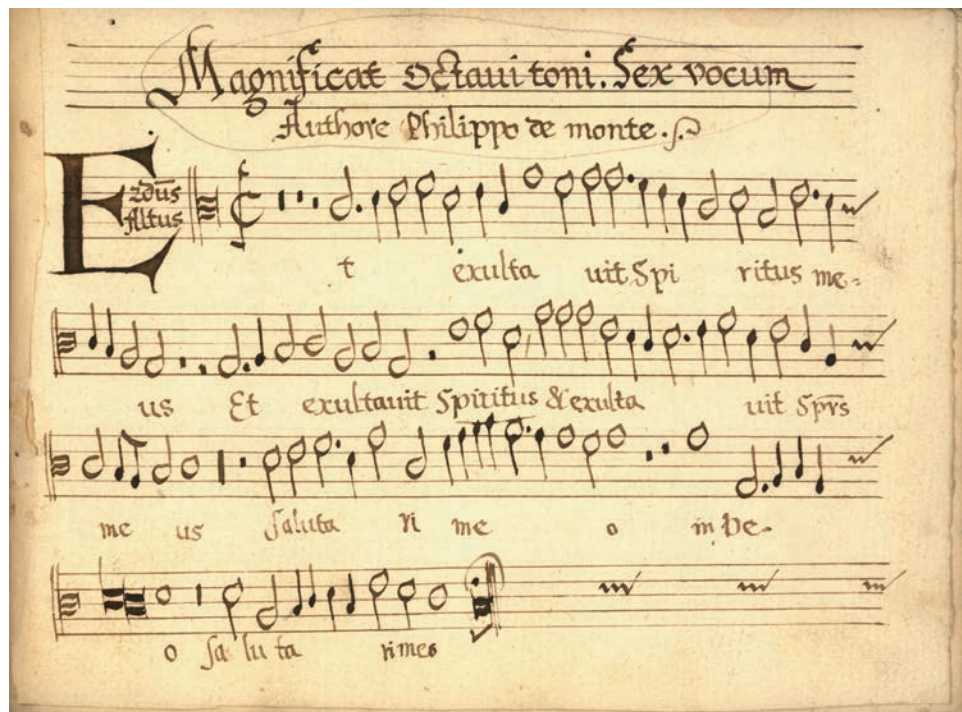 Magnificat Octaui toni. Sex vocum
Authore Philippo de monte.
E
2dūs
Altus
t exulta uit Spi ritus me-
us Et exultauit Spiritus & exulta uit Sp̄rs
me us saluta ri me o in De-
o sa lu ta ri meo